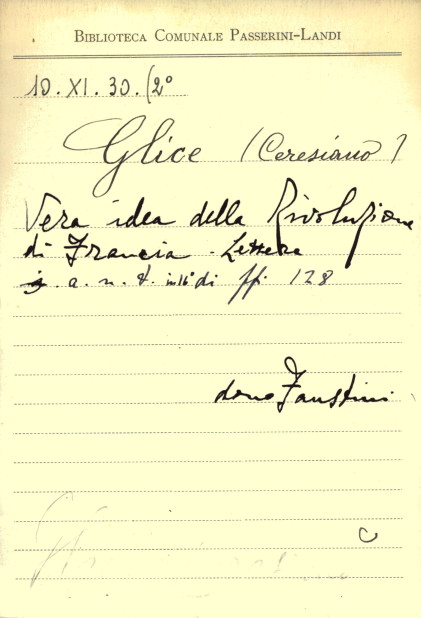 BIBLIOTECA COMUNALE PASSERINI-LANDI
10. XI. 30. (2°
Glice (Ceresiano)
Vera idea della Rivoluzione
di Francia - Lettera
. a. n. t. in 16° di ff. 128
dono Faustini
C